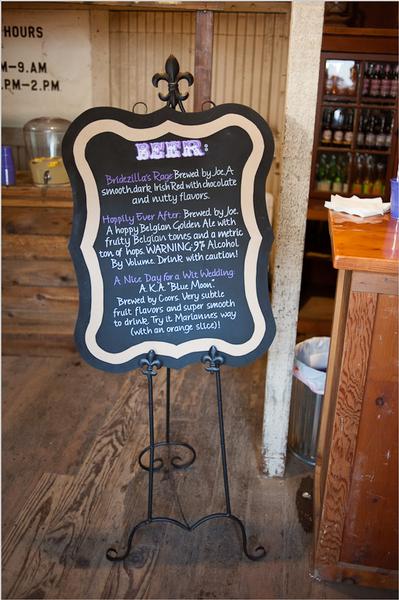 HOURS
M-9.AM
.PM-2.PM
BEER:
Bridezilla's Rage Brewed by Joe. A
smooth, dark, Irish Red with chocolate
and nutty flavors.
Hoppily Ever After: Brewed by Joe.
A hoppy Belgian Golden Ale with
fruity Belgian tones and a metric
ton of hops. WARNING: 9% Alcohol
By Volume. Drink with caution!
A Nice Day for a Wit Wedding:
A.K.A. "Blue Moon."
Brewed by Coors. Very subtle
fruit flavors and super smooth
to drink. Try it Marianne's way
(with an orange slice)!